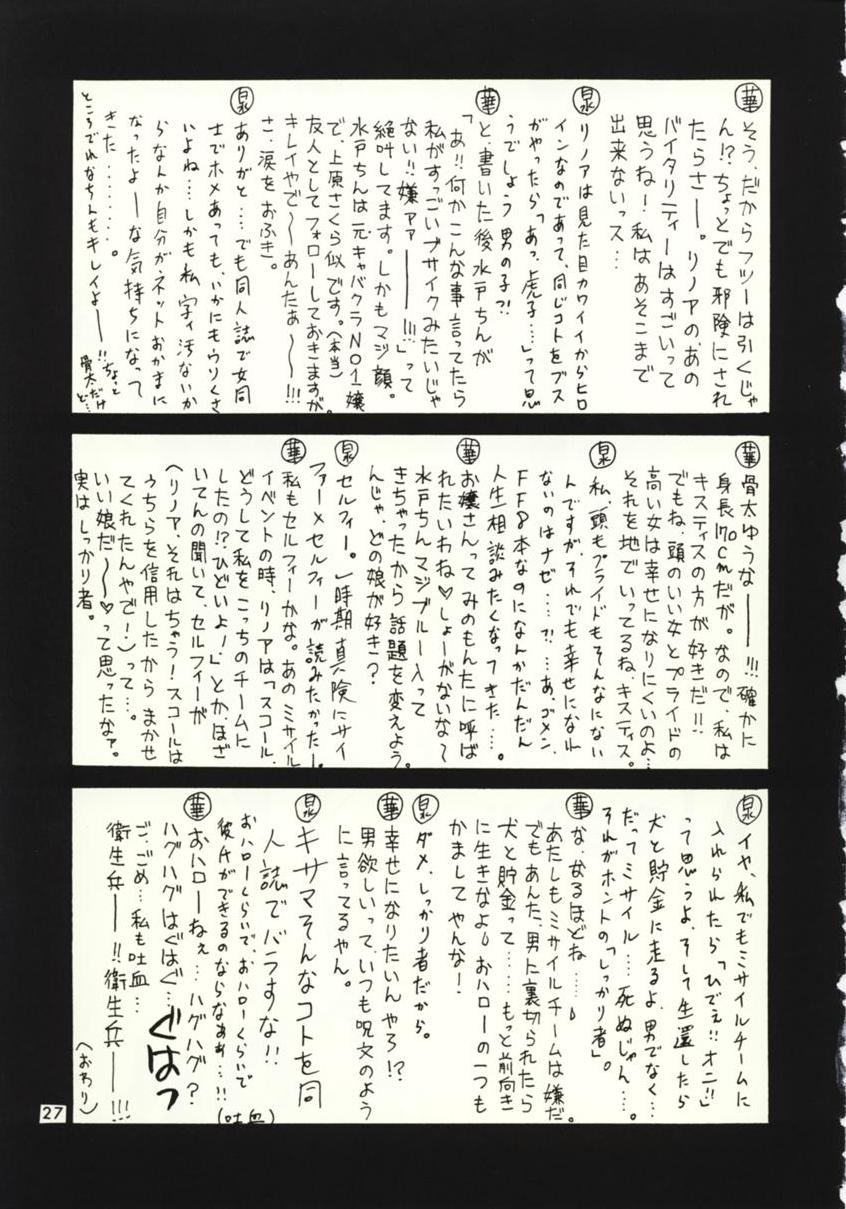 華 そう、だからフツーは引くじゃ
ん!?ちょっとでも邪険にされ
たらさー。リノアのあの
バイタリティーはすごいって
思うね!私はあそこまで
出来ないっス…
泉 リノアは見た目カワイイからヒロ
インなのであって、同じコトをブス
がやったら「あっ、虎子…」って思
うでしょう男の子?!
華 と書いた後水戸ちんが
「あ!!何かこんな事言ってたら
私がすっごいブサイクみたいじゃ
ない!!嫌ァァーーー!!!」って
絶叫してます。しかもマジ顔。
水戸ちんは元キャバクラNO1嬢
で、上原さくら似です。(本当)
友人としてフォローしておきますが。
キレイやで〜〜あんたぁ〜〜!!!
さ、涙をおふき。
泉 ありがと…でも同人誌で女同
士でホメあっても、いかにもウソくさ
いよね…しかも私、字ィ汚ないか
らなんか自分がネットおかまに
なったよーな気持ちになって
きた………。
ところでれなちんもキレイよーー!!ちょっと
骨太だけど…
華 骨太ゆうなーー!!!確かに
身長170cmだが。なので、私は
キスティスの方が好きだ!!
でもね、頭のいい女とプライドの
高い女は幸せになりにくいのよ…
それを地でいってるね、キスティス。
泉 私、頭もプライドもそんなにない
んですが、それでも幸せになれ
ないのはナゼ…?!…あ、ゴメン、
FF8本なのになんかだんだん
人生相談みたくなってきた…。
華 お嬢さんってみのもんたに呼ば
れたいわね♡しょーがないな〜
水戸ちんマジブルー入って
きちゃったから話題を変えよう。
んじゃ、どの娘が好き?
泉 セルフィー。一時期真険にサイ
ファー×セルフィーが読みたかったー。
華 私もセルフィーかな。あのミサイル
イベントの時、リノアは「スコール、
どうして私をこっちのチームに
したの!?ひどいよ!」とか、ほざ
いてんの聞いて、セルフィーが
(リノア、それはちゃう!スコールは
うちらを信用したからまかせ
てくれたんやで!)って…。
いい娘だ〜〜♡って思ったなァ。
実はしっかり者。
泉 イヤ、私でもミサイルチームに
入れられたら「ひでえ!!オニ!!」
って思うよ、そして生還したら
犬と貯金に走るよ、男でなく…
だってミサイル…死ぬじゃん…。
それがホントの「しっかり者」。
華 な、なるほどね…。
あたしもミサイルチームは嫌だ。
でもあんた、男に裏切られたら
犬と貯金って……もっと前向き
に生きなよ。おハローの一つも
かましてやんな!
泉 ダメ、しっかり者だから。
華 幸せになりたいんやろ!?
男欲しいって、いつも呪文のよう
に言ってるやん。
泉 キサマそんなコトを同
人誌でバラすな!!
おハローくらいで、おハローくらいで
彼氏ができるのならなぁぁ…!!
(吐血)
華 おハローねぇ…ハグハグ?
ハグハグはぐはぐ…ぐはっ
ご、ごめ…私も吐血…
衛生兵ーー!!衛生兵ーー!!!
(おわり)
27